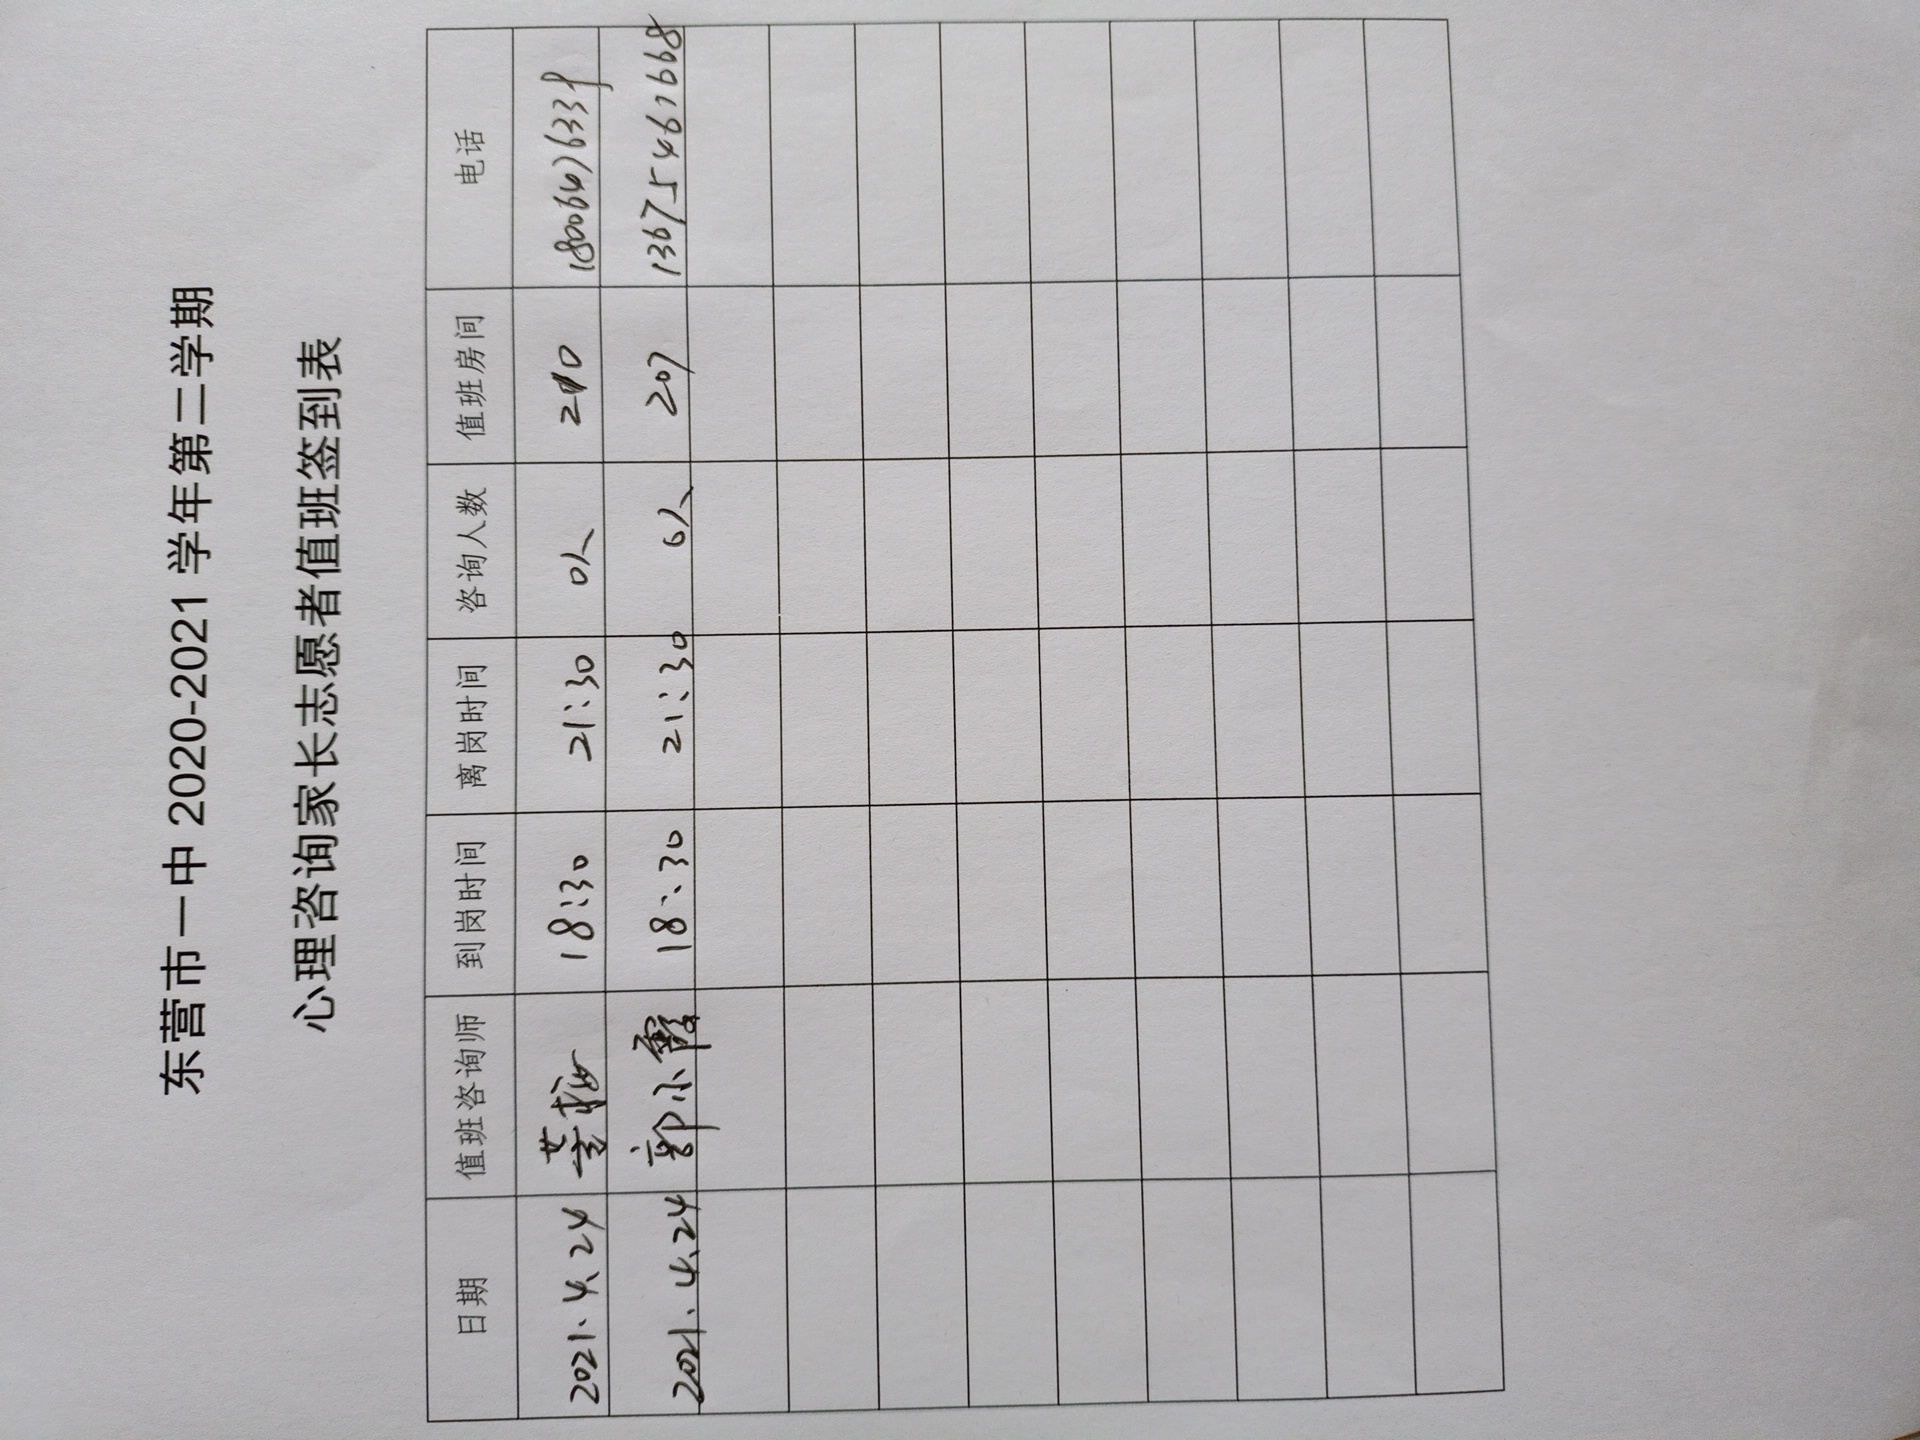 东营市一中 2020-2021 学年第二学期
心理咨询家长志愿者值班签到表
日期 值班咨询师 到岗时间 离岗时间 咨询人数 值班房间 电话
2021.4.24 18:30 21:30 0人 210
2021.4.24 郭小霞 18:30 21:30 0人 207 13675461668